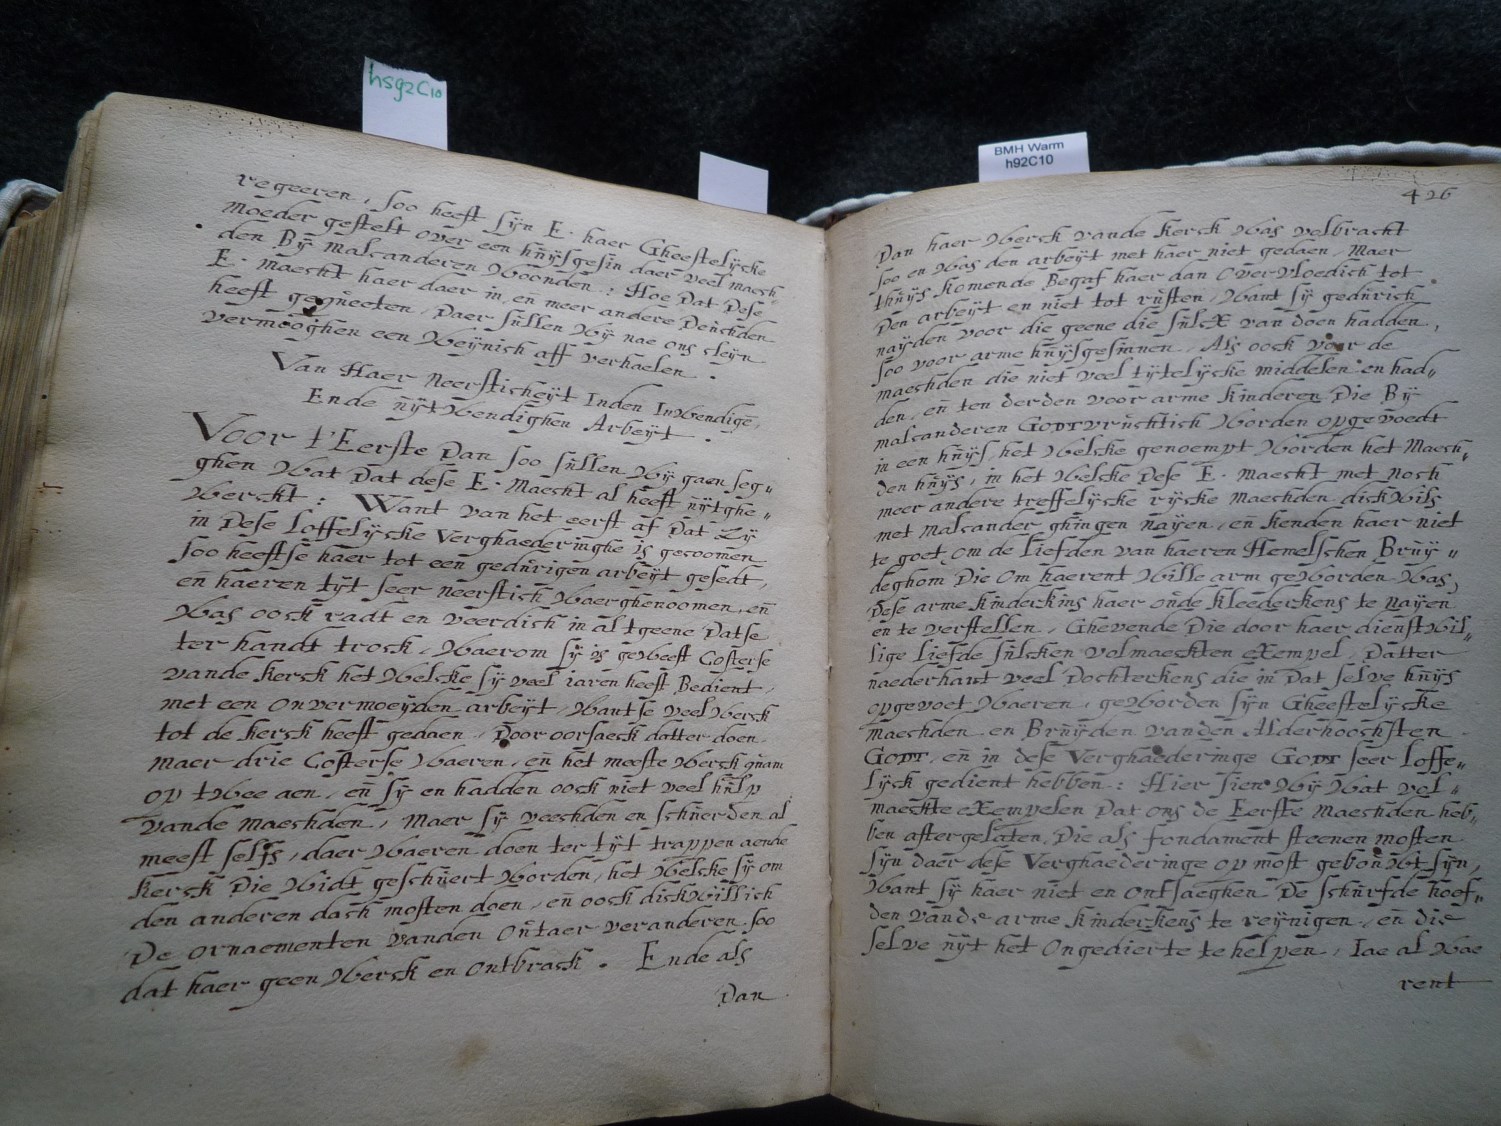 hs92C10
BMH Warm
h92C10
regeeren, soo heeft sÿn E. haer Gheestelÿcke
moeder gestelt over een huÿsgesin daer veel maech-
den Bÿ malcanderen Woonden : Hoe Dat Dese
E. maecht haer daer in, en meer andere Deuchden
heeft gequeeten, Daer sullen Wÿ nae ons cleÿn
vermooghen een Weÿnich aff verhaelen .
Van Haer Neersticheÿt Inden InWendigē,
Ende uÿtWendighen Arbeÿt .
Voor t'Eerste Dan soo sullen Wÿ gaen seg„
ghen Wat Dat dese E. Maecht al heeft uÿtghe„
Werckt : Want van het eerst af Dat Zÿ
in Dese Loffelÿcke Verghaederinghe is gecoomen
soo heeftse haer tot een gedurigen arbeÿt gesedt,
en̄ haeren tÿt seer neerstich Waerghenoomen, en̄
Was oock radt en veerdich in al tgeene Datse
ter handt trock, Waerom sÿ is geWeest Costerse
vande kerck het Welcke sÿ veel iaren heeft Bedient,
met een onvermoeÿden arbeÿt, Wantse veel Werck
tot de kerck heeft gedaen, Door oorsaeck datter doen
maer drie Costerse Waeren, en̄ het meeste Werck quam
op tWee aen, en̄ sÿ en hadden oock niet veel hulp
vande maechden, Maer sÿ veechden en schuerden al
meest selfs, daer Waeren doen ter tÿt trappen aende
kerck Die Widt geschuert Worden, het Welcke sÿ om
den anderen dach mosten doen, en̄ oock dickWillich
De ornaementen vanden outaer veranderen soo
dat haer geen Werck en ontbrack . Ende als
Dan
426
Dan haer Werck vande kerck Was volbracht
soo en Was den arbeÿt met haer niet gedaen, Maer
thuÿs komende Begaf haer dan overvloedich tot
Den arbeÿt en niet tot rusten, Want sÿ gedurich
naÿden voor die geene die sulcx van doen hadden,
soo voor arme huÿsgesinnen, Als oock voor de
maechden die niet veel tÿtelÿcke middelen en had„
den, en̄ ten derden voor arme kinderen Die Bÿ
malcanderen GODTvruchtich Worden opgevoedt
in een huÿs, het Welcke genoempt Worden het Maech„
den huÿs, in het Welcke Dese E. maecht met noch
meer andere treffelÿcke rÿcke maechden dickWils
met malcander ghingen naÿen, en̄ kenden haer niet
te goet om de liefden van haeren Hemelschen Bruÿ„
deghom Die om haerent Wille arm geWorden Was,
Dese arme kinderkins haer oude kleederkens te naÿen
en te verstellen, Ghevende Die door haer dienstWil„
lige liefde sulcken volmaeckten exempel, Datter
naederhant veel Dochterkens die in Dat selve huÿs
opgevoet Waeren, geWorden sÿn Gheestelÿcke
maechden en Bruÿden vanden Alderhoochsten
GODT, en̄ in dese Verghaederinge GODT seer loffe„
lÿck gedient hebben : Hier sien Wÿ Wat vol„
maeckte exempelen Dat ons de Eerste Maechden heb„
ben aftergelaten, Die als fondament steenen mosten
sÿn daer dese Verghaederinge op most gebouWt sÿn,
Want sÿ haer niet en ontsaeghen De schurfde hoef„
den vande arme kinderkens te reÿnigen, en die
selve uÿt het ongedierte te helpen, Iae al Wae
rent